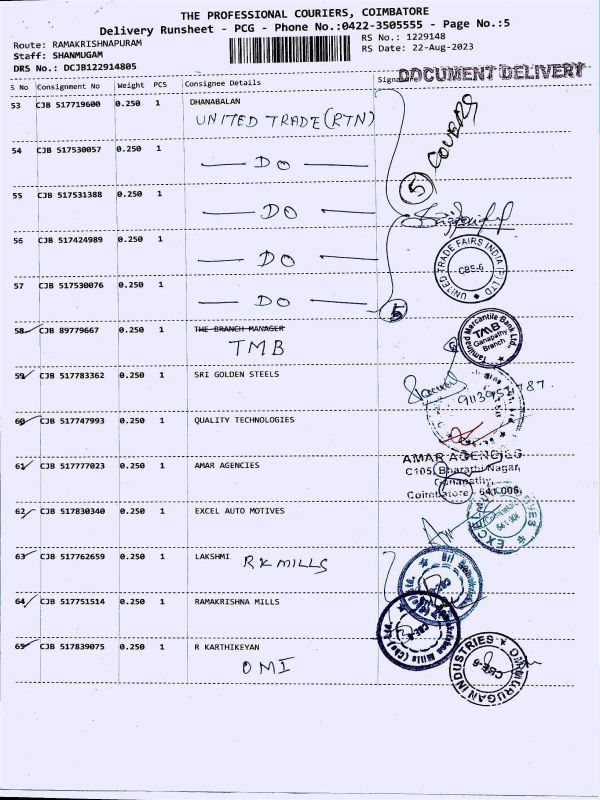 THE PROFESSIONAL COURIERS, COIMBATORE
Delivery Runsheet - PCG - Phone No.:0422-3505555 - Page No.:5
Route: RAMAKRISHNAPURAM RS No.: 1229148
Staff: SHANMUGAM RS Date: 22-Aug-2023
DRS No.: DCJB122914805
DOCUMENT DELIVERY
S No Consignment No Weight PCS Consignee Details
53 CJB 517719600 0.250 1 DHANABALAN
UNITED TRADE (RTN)
5 COVERS
54 CJB 517530057 0.250 1
DO
55 CJB 517531388 0.250 1
DO
56 CJB 517424989 0.250 1
DO
UNITED TRADE FAIRS INDIA (P) LTD
CBE-6
57 CJB 517530076 0.250 1
DO
5
58 CJB 89779667 0.250 1 THE BRANCH MANAGER
TMB
Tamilnad Mercantile Bank Ltd.
TMB
Ganapathy
Branch
59 CJB 517783362 0.250 1 SRI GOLDEN STEELS
60 CJB 517747993 0.250 1 QUALITY TECHNOLOGIES
61 CJB 517777023 0.250 1 AMAR AGENCIES
AMAR AGENCIES
C105, Bharathi Nagar,
Ganapathy,
Coimbatore - 641 006.
62 CJB 517830340 0.250 1 EXCEL AUTO MOTIVES
63 CJB 517762659 0.250 1 LAKSHMI
RK MILLS
64 CJB 517751514 0.250 1 RAMAKRISHNA MILLS
65 CJB 517839075 0.250 1 R KARTHIKEYAN
OMI
OMMURUGAN INDUSTRIES
CBE-6